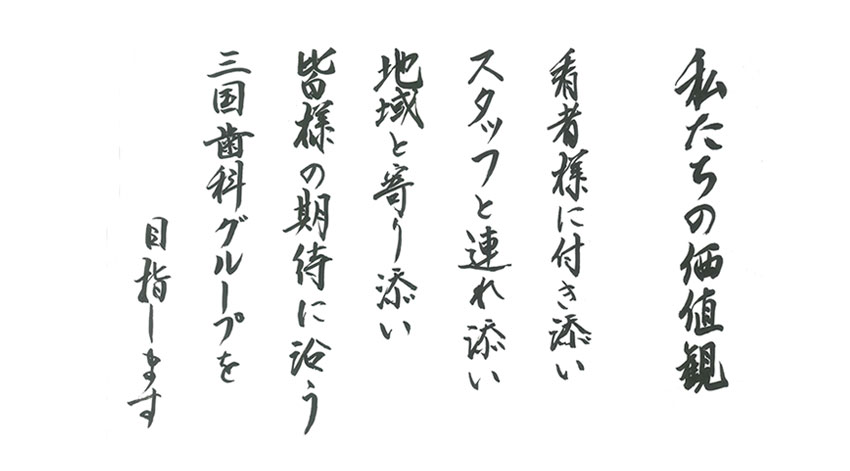 私たちの価値観
看者様に付き添い
スタッフと連れ添い
地域と寄り添い
皆様の期待に沿う
三国歯科グループを
目指します